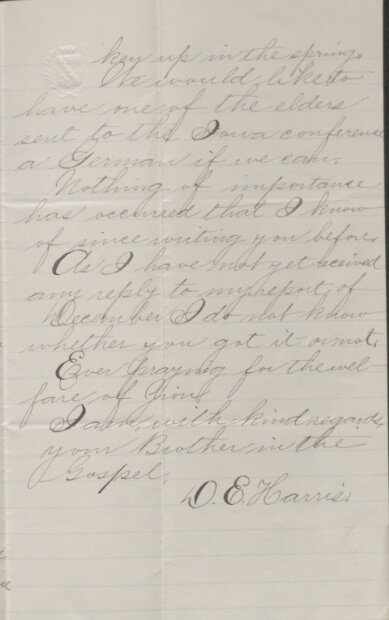 key up in the spring.
We would like to
have one of the elders
sent to the Iowa conference
a German if we can.
Nothing of importance
has occurred that I know
of since writing you before.
As I have not yet received
any reply to my report of
December I do not know
whether you got it or not.
Ever praying for the wel
fare of Zion
I am, with kind regards,
your Brother in the
Gospel.
D. E. Harris.